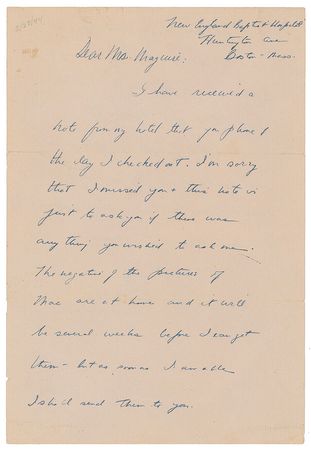 2/27/44
New England Baptist Hospital
Huntington Ave
Boston - Mass.
Dear Mrs. Maguire:
I have received a
note from my hotel that you phoned
the day I checked out. I'm sorry
that I missed you & this note is
just to ask you if there was
anything you wished to ask me.
The negative of the pictures of
Mac are at home and it will
be several weeks before I can get
them - but as soon as I am able
I shall send them to you.